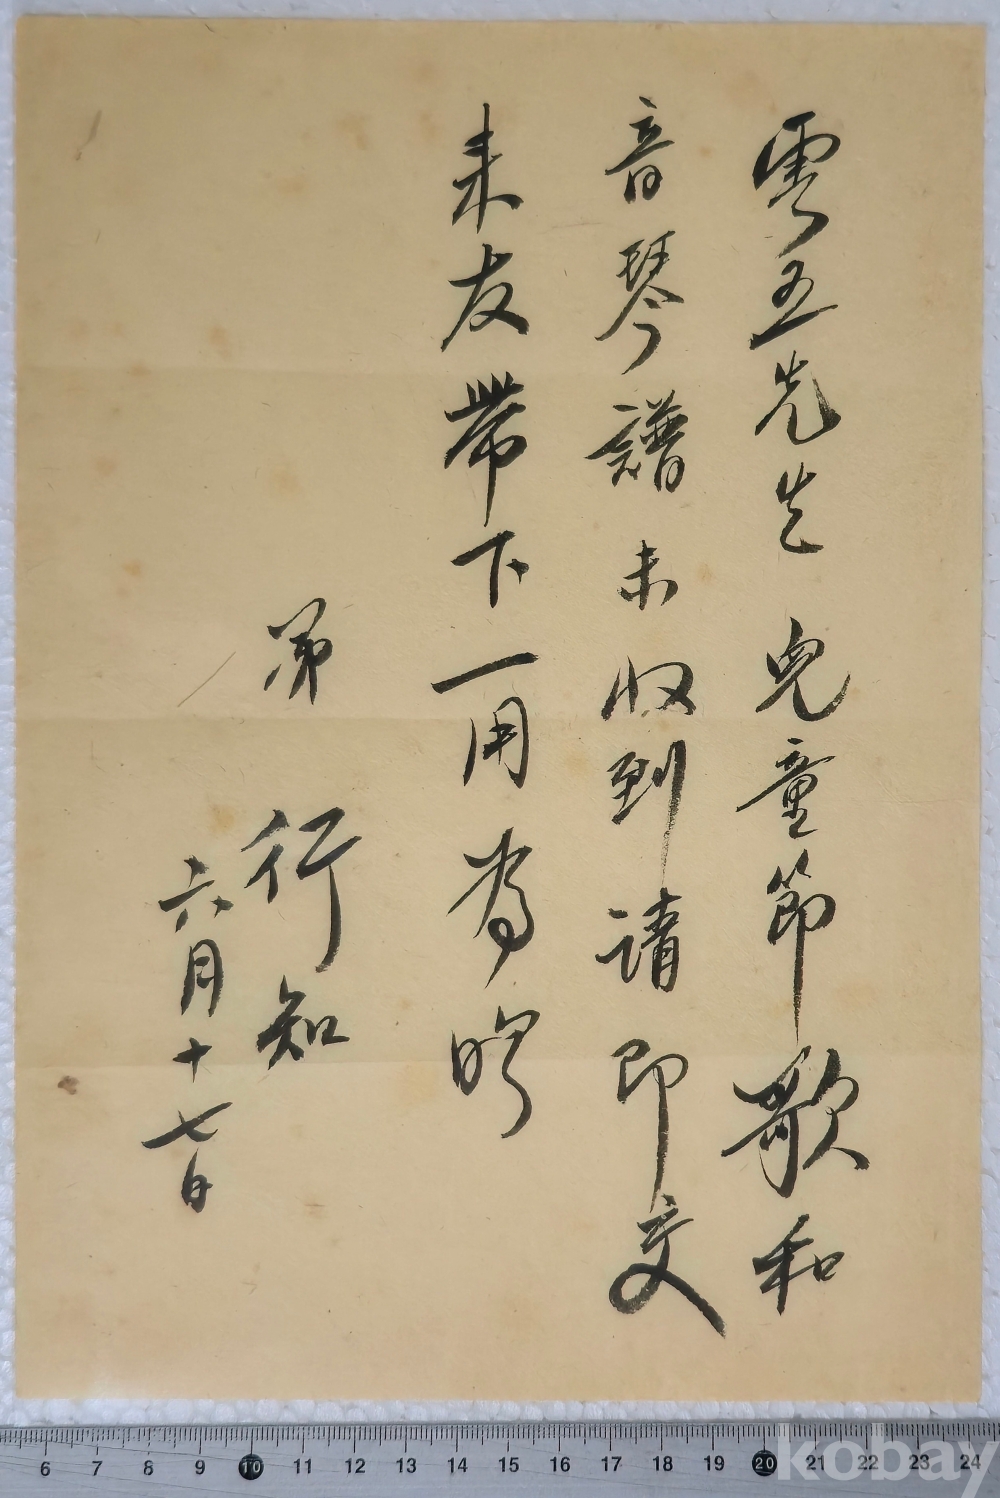 雲五先生 兒童節歌和
音琴譜未收到請即交
來友帶下一用為盼
弟 行知
六月十七日
6 7 8 9 10 11 12 13 14 15 16 17 18 19 20 21 22 23 24
kobay